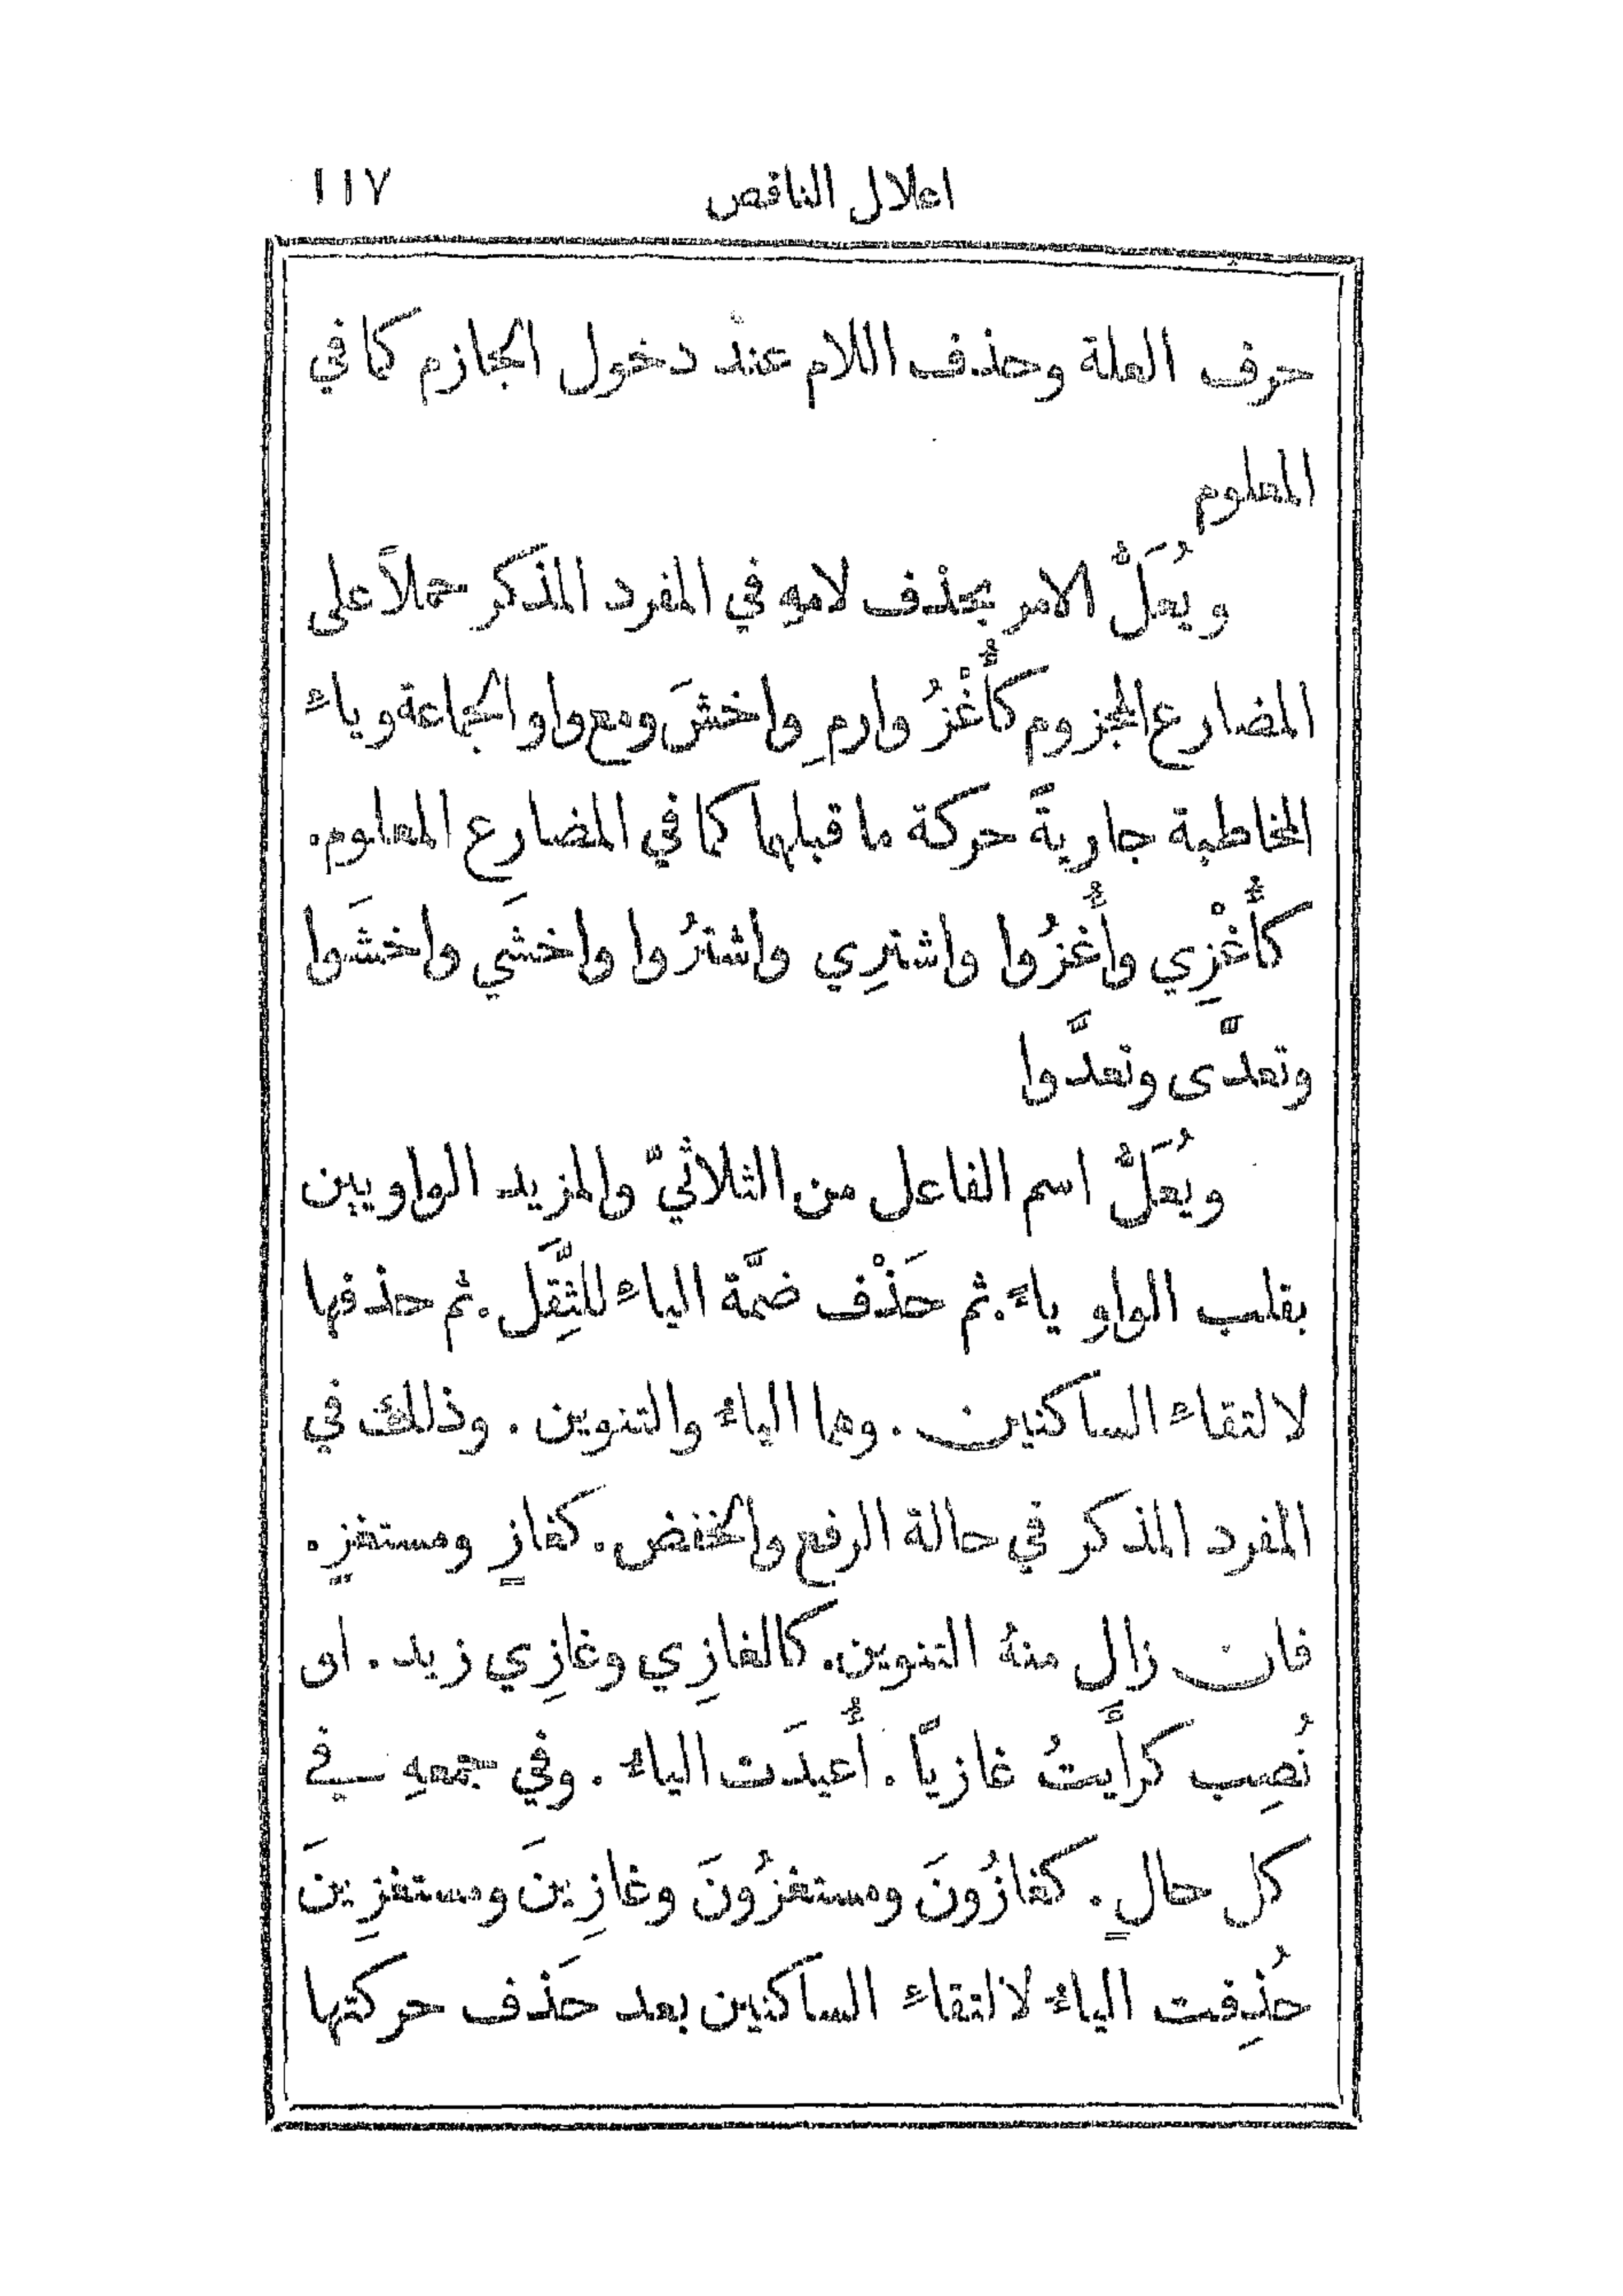 اعلال الناقص ١١٧
حرف العلة وحذف اللام عند دخول الجازم كما في
المعلوم
ويُعَلُّ الامر بحذف لامهِ في المفرد المذكر حملاً على
المضارع المجزوم كأُغْزُ وارمِ واخشَ ومع واو الجماعة وياء
المخاطبة جاريةً حركة ما قبلهما كما في المضارع المعلوم.
كأُغْزِي وأُغزُوا واشترِي واشترُوا واخشَي واخشَوا
وتعدَّى وتعدَّوا
ويُعَلُّ اسم الفاعل من الثلاثيّ والمزيد الواويين
بقلب الواو ياءً. ثم حَذْف ضمَّة الياء للثِّقَل. ثم حذفها
لالتقاء الساكنين. وهما الياء والتنوين. وذلك في
المفرد المذكر في حالة الرفع والخفض. كغازٍ ومستغزٍ.
فان زال منهُ التنوين. كالغازِي وغازِي زيد. او
نُصِب كرأَيتُ غازياً. أُعيدَت الياء. وفي جمعهِ في
كل حالٍ. كغازُونَ ومستغزُونَ وغازِينَ ومستغزِينَ
حُذِفت الياء لالتقاء الساكنين بعد حَذف حركتها